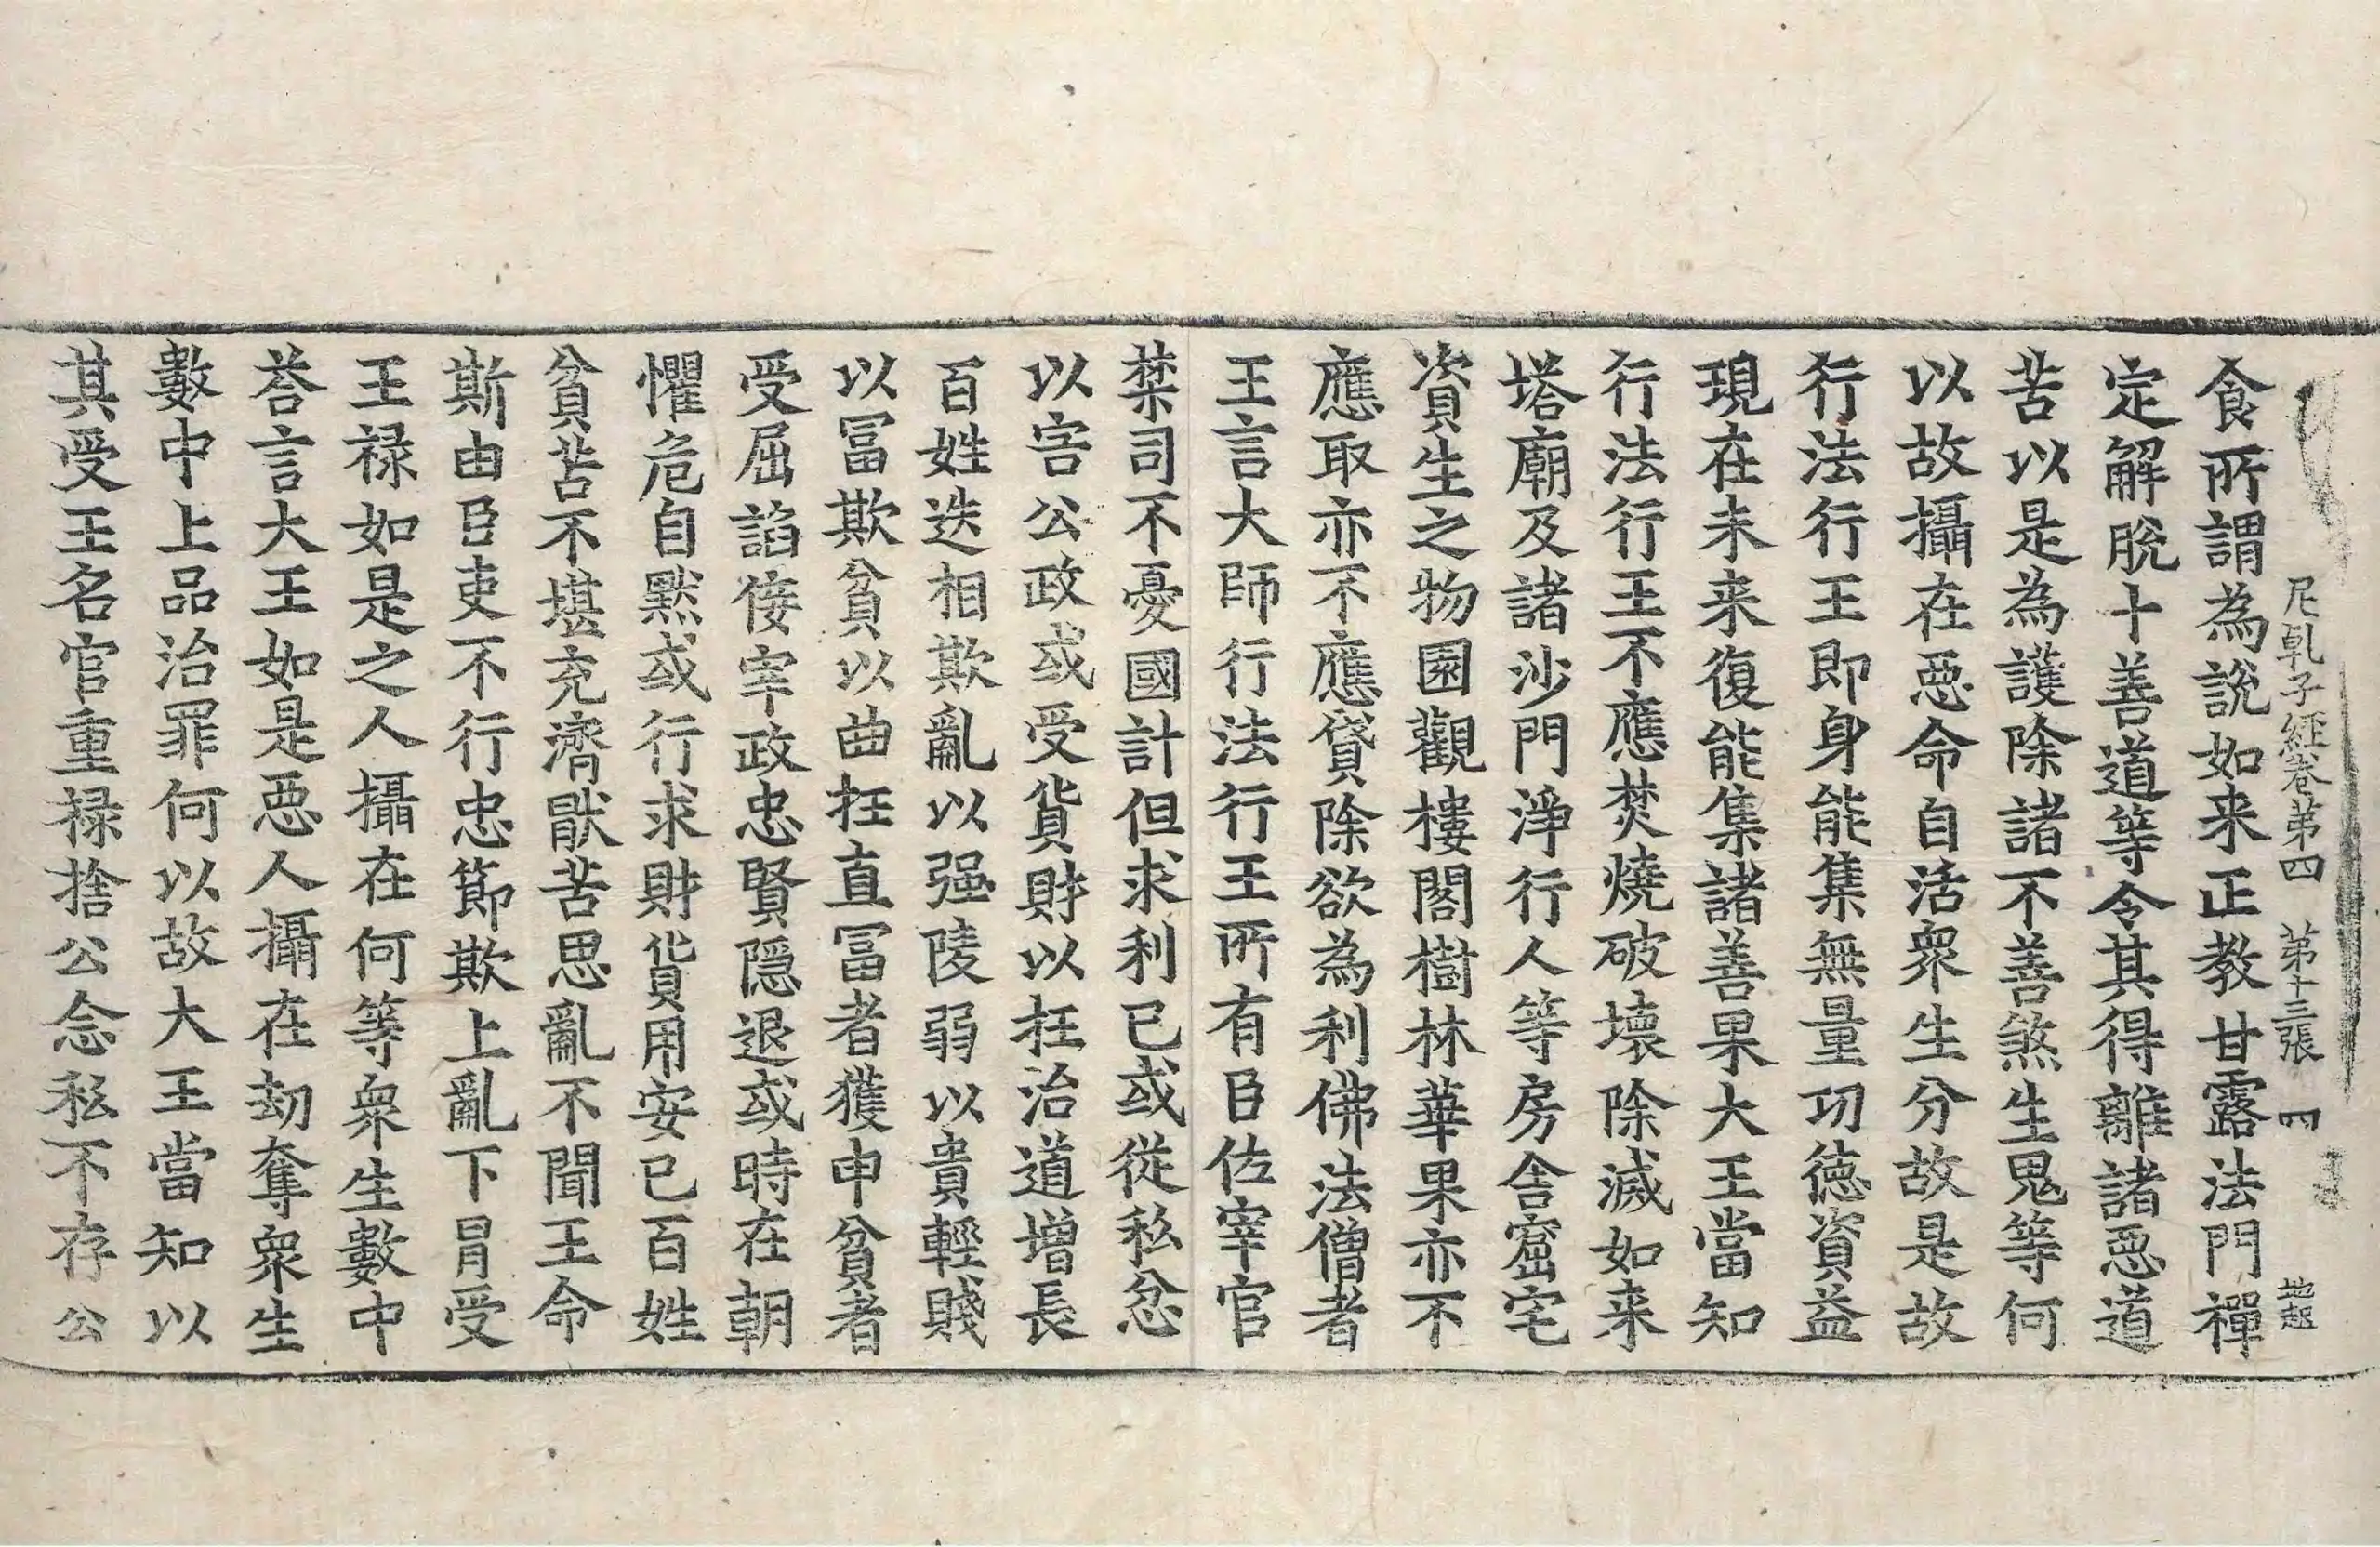 尼乹子経卷苐四　苐十三張　四　地起
食所謂為説如来正教甘露法門禪
定解脫十善道等令其得離諸惡道
苦以是為護除諸不善煞生鬼等何
以故攝在惡命自活衆生分故是故
行法行王即身能集無量功徳資益
現在未来復能集諸善果大王當知
行法行王不應焚燒破壞除滅如来
塔廟及諸沙門淨行人等房舍窟宅
資生之物園觀樓閣樹林華果亦不
應取亦不應貸除欲為利佛法僧者
王言大師行法行王所有臣佐宰官
禁司不憂國計但求利已或從私忿
以害公政或受貨財以抂治道增長
百姓迭相欺亂以强陵弱以貴輕賤
以冨欺貧以曲抂直冨者獲申貧者
受屈諂佞宰政忠賢隱退或時在朝
懼危自黙或行求財貨用安已百姓
貧苦不堪充濟猒苦思亂不聞王命
斯由臣吏不行忠節欺上亂下冐受
王禄如是之人攝在何等衆生數中
荅言大王如是惡人攝在劫奪衆生
數中上品治罪何以故大王當知以
其受王名官重禄捨公念私不存公